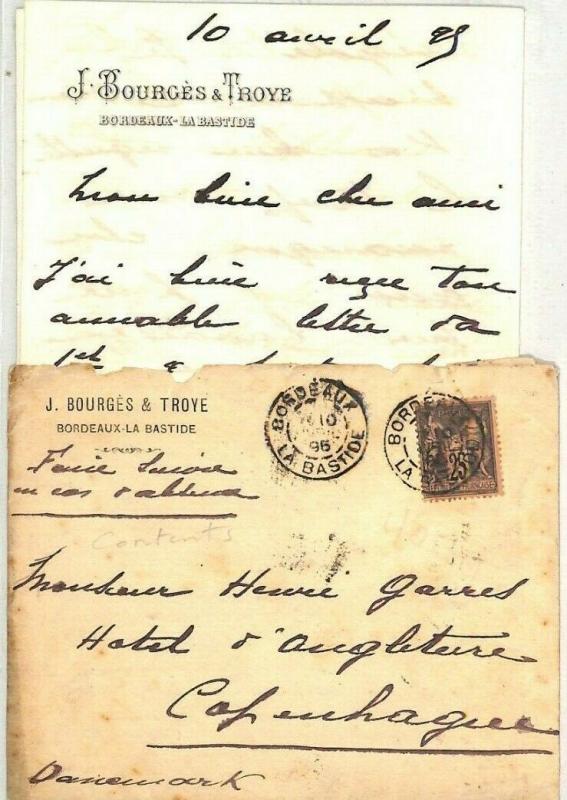 10 avril 95
J. BOURGÈS & TROYE
BORDEAUX-LA BASTIDE
Mon bien cher ami
J'ai bien reçu ton
aimable lettre du
1er
J. BOURGÈS & TROYE
BORDEAUX-LA BASTIDE
Faire suivre
en cas d'absence
BORDEAUX
10
95
LA BASTIDE
BORDE
LA
25
contents
Monsieur Henri Garres
Hotel d'Angleterre
Copenhague
Danemark